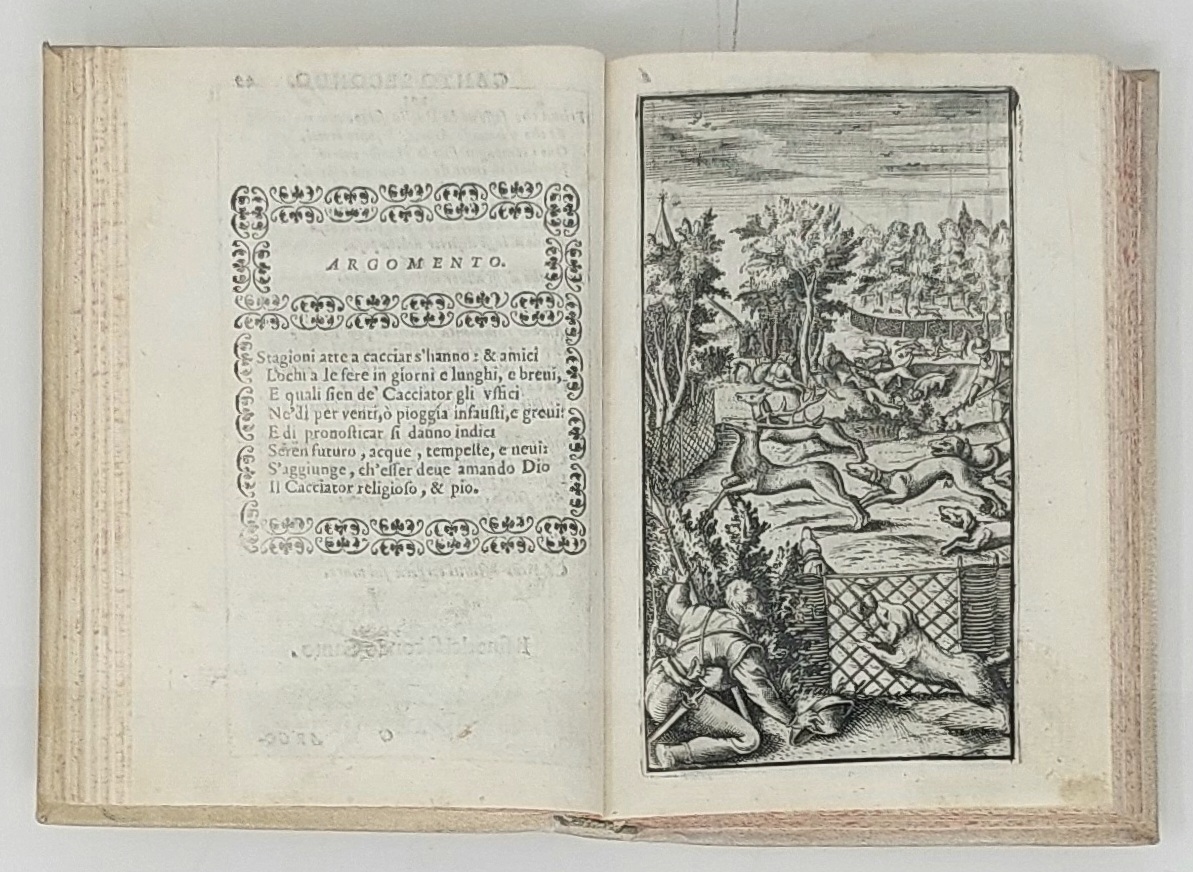 ARGOMENTO.
Stagioni atte a cacciar s'hanno: & amici
Lochi a le fere in giorni e lunghi, e breui,
E quali sien de' Cacciator gli vffici
Ne' dì per venti, ò pioggia infausti, e greui:
E di pronosticar si danno indici
Seren futuro, acque, tempeste, e neui:
S'aggiunge, ch'esser deue amando Dio
Il Cacciator religioso, & pio.
9